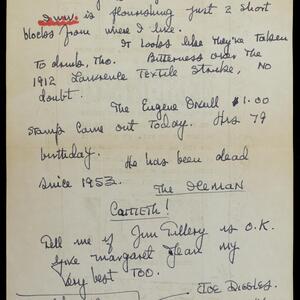 I.W.W. is flourishing just 2 short
blocks from where I live.
It looks like they've taken
to drink, tho. Bitterness over the
1912 Lawrence Textile Strike, no
doubt.
The Eugene O'Neill $1.00
stamp came out today. His 79
birthday.
He has been dead
since 1953.
The Iceman
Cometh!
Tell me if Jim Tillery is O.K.
Give Margaret Jean my
Very best too.
Joe Biggles